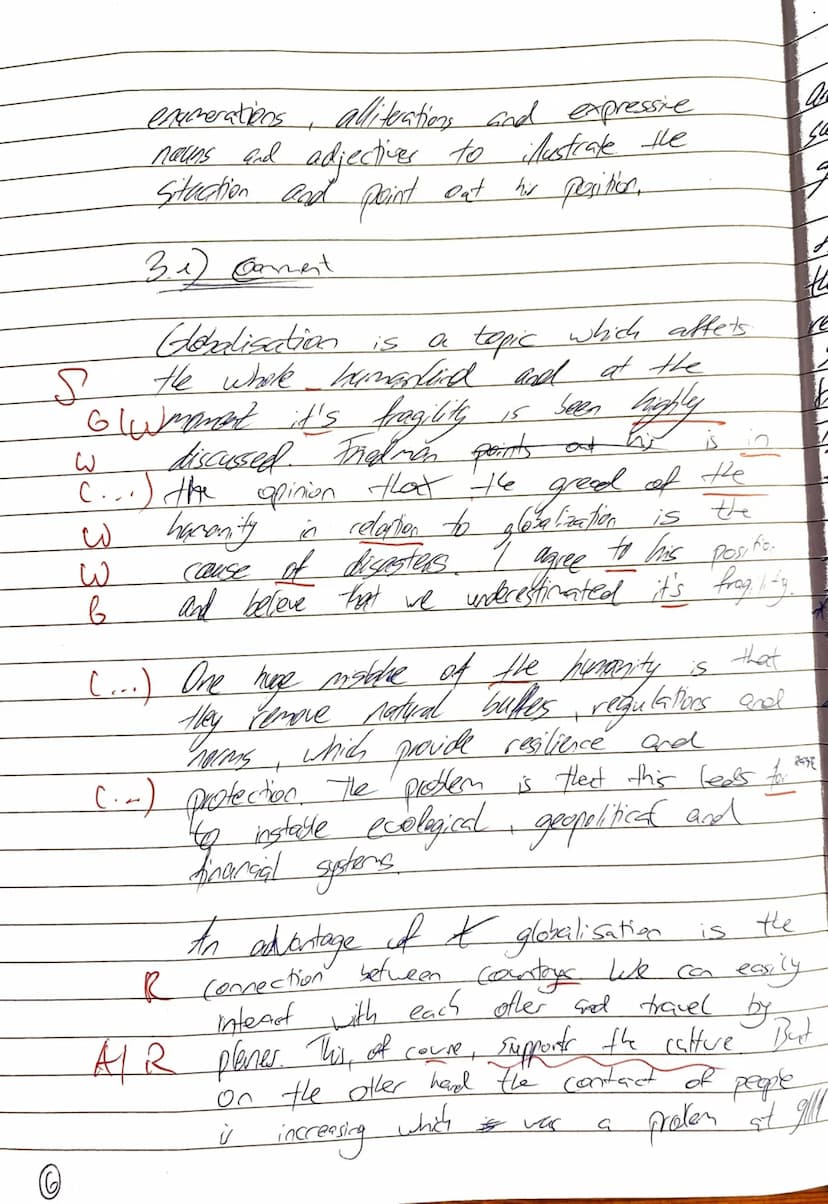 enumerations, alliterations and expressive
nouns and adjectives to illustrate the
situation and point out his position.
3.1) Comment
Globalisation is a topic which affets
S the whole humankind and at the
G (W) moment it's fragility is been highly
W discussed. Friedman points out his is in
(...) the opinion that the greed of the
W humanity in relation to globalization is the
W cause of disasters. I agree to his positio
G and believe that we underestimated it's fragility.
(...) One huge mistake of the humanity is that
they remove natural buffes, regulations and
norms, which provide resilience and
(...) protection. The problem is that this leads for
to instable ecological, geopolitical and
financial systems.
An advantage of t globalisation is the
R connection between countrys. We can easily
interact with each other and travel by
A/R planes. This, of course, supports the culture. But
on the other hand the contact of people
is increasing which is was a problem at 9/11
6